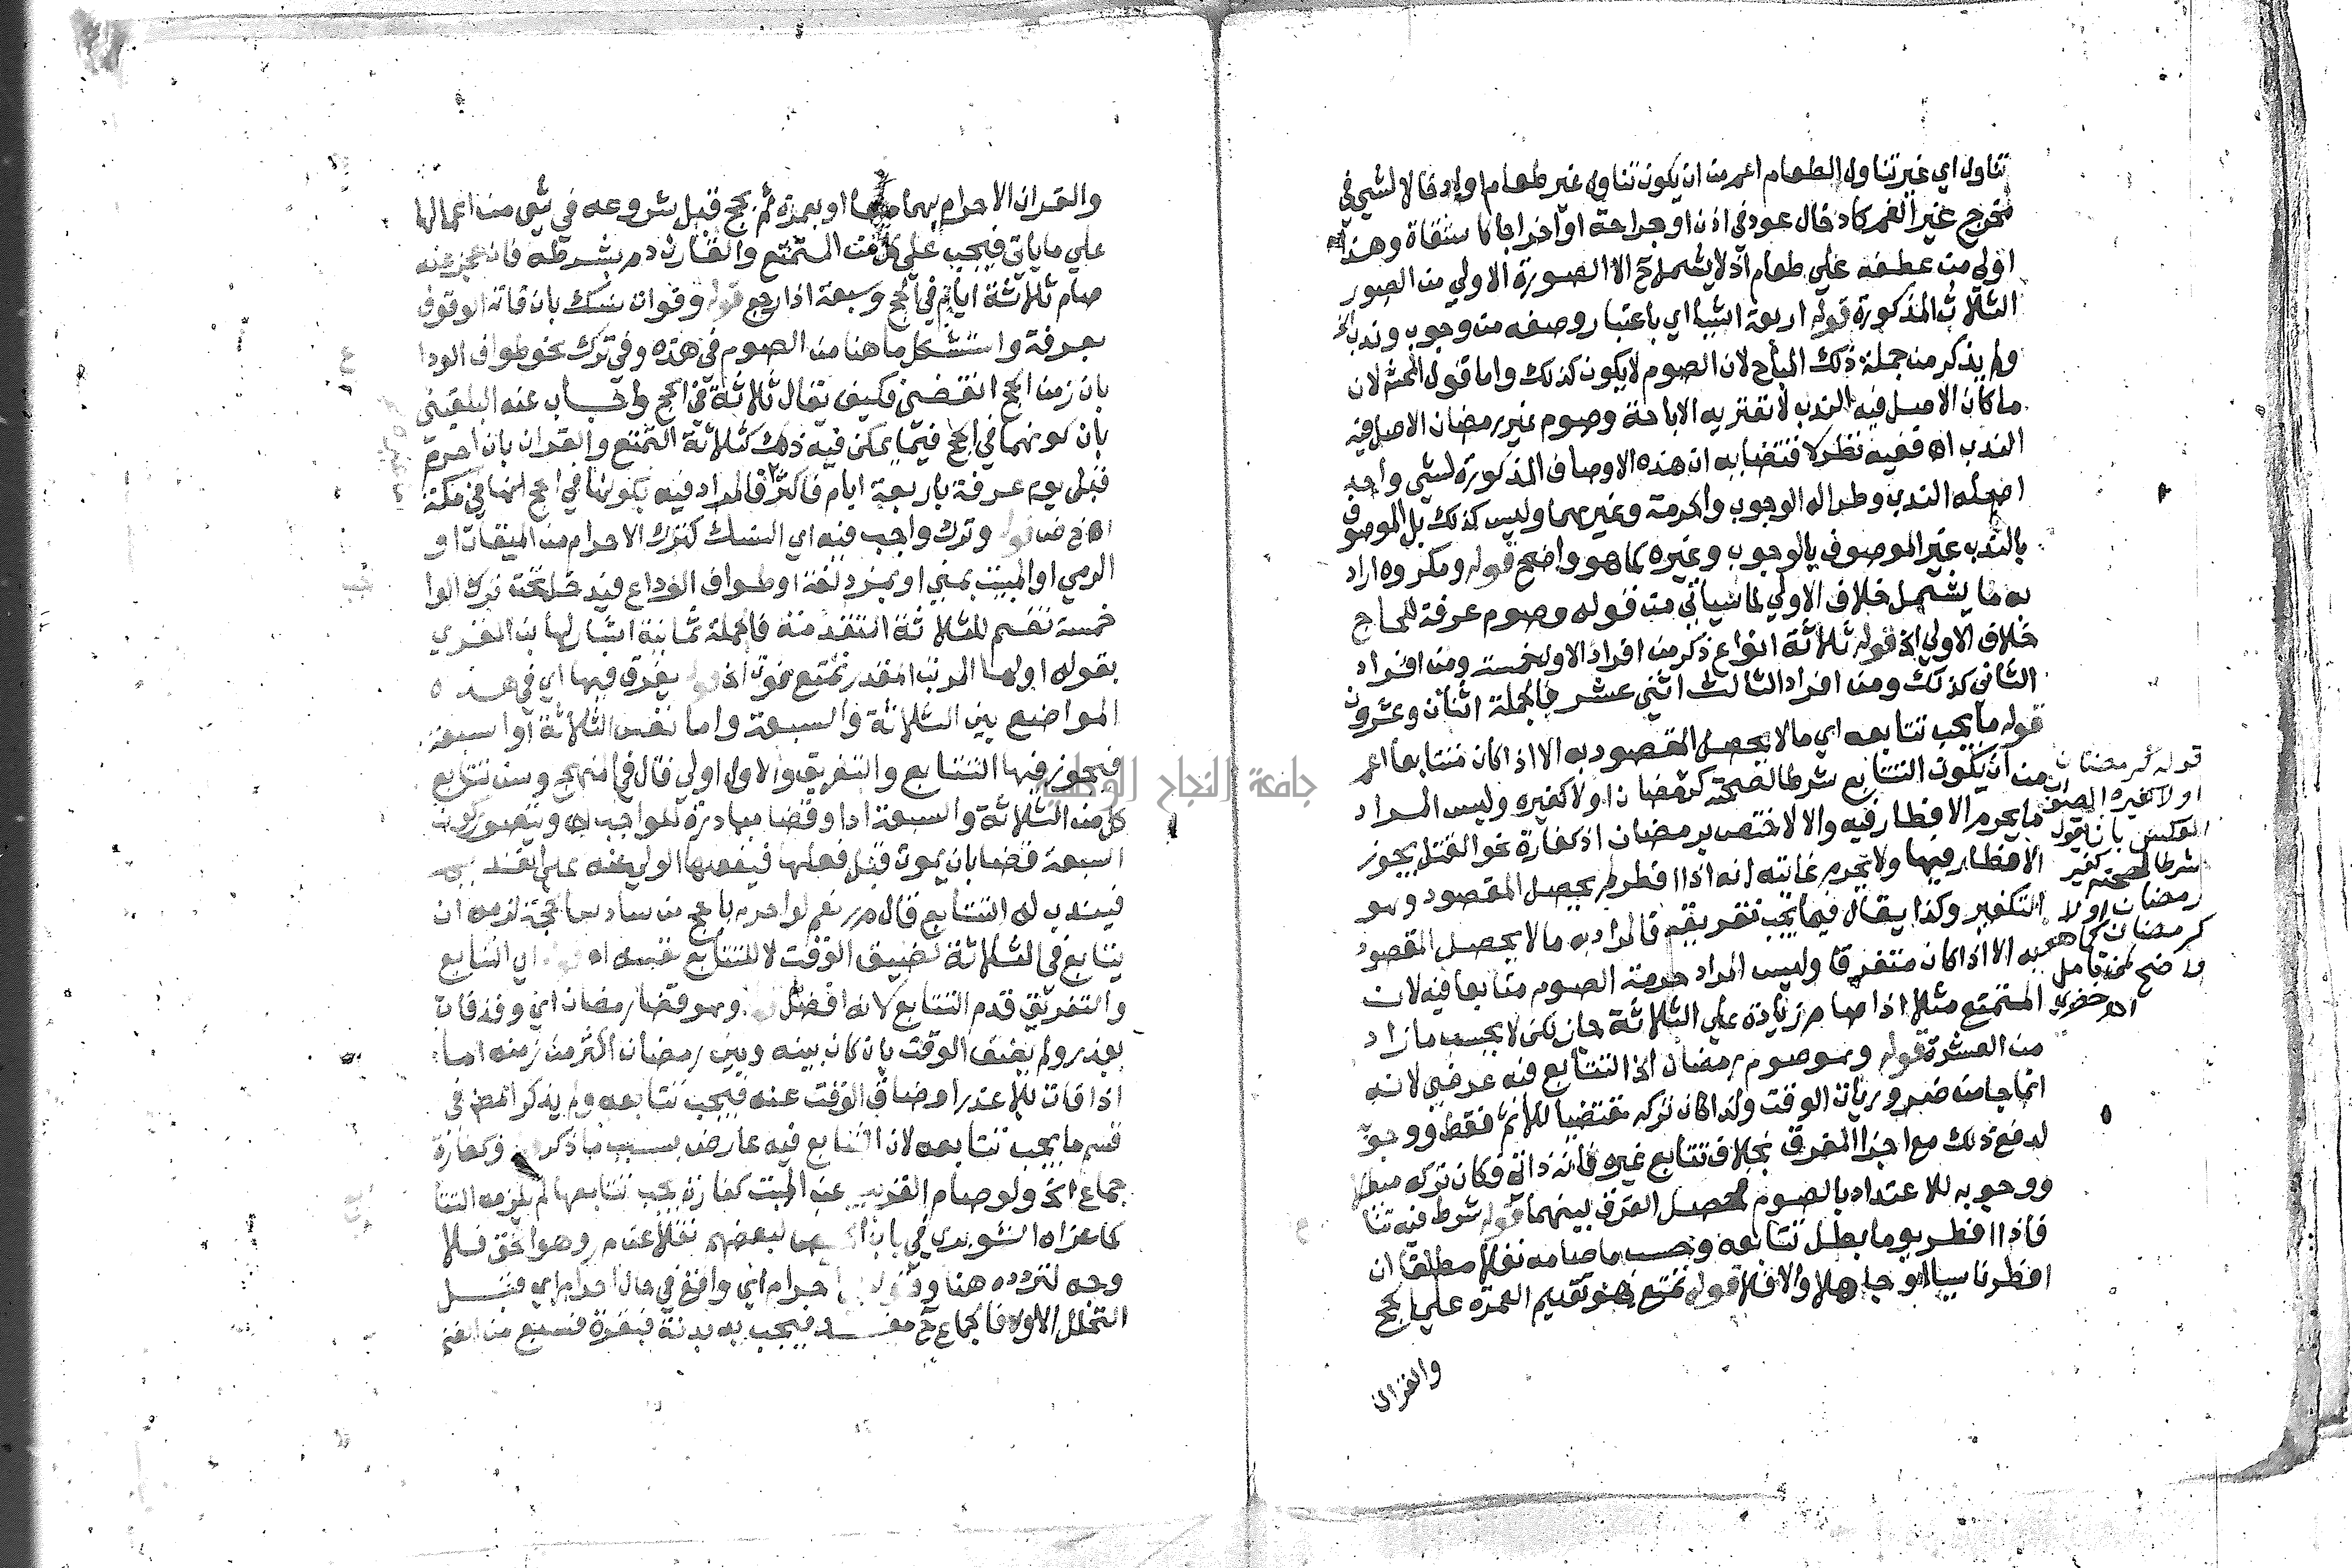 تناول اي غير تناول الطعام اعم من ان يكون تناول غير طعام او ادخالا لشي في
مخرج غير الفم كادخال عود في اذن او جراحة او اخراجا كاستقاة وهذا
اولي من عطفه علي طعام اذ لا يشمل ح الا الصورة الاولي من الصور
الثلاث المذكورة قوله اربعة اشيا اي باعتبار وصفه من وجوب وندب الخ
ولم يذكر من جملة ذلك المباح لان الصوم لا يكون كذلك واما قول المحشي لان
ما كان الاصل فيه الندب لا تعتريه الاباحة وصوم غير رمضان الاصل فيه
الندب اه ففيه نظر لاقتضايه ان هذه الاوصاف المذكورة لشي واحد
اصله الندب وطراله الوجوب والحرمة وغيرهما وليس كذلك بل الموصوف
بالندب غير الموصوف بالوجوب وغيره كما هو واضح قوله ومكروه اراد
به ما يشمل خلاف الاولي لما سياتي من قوله وصوم عرفة للحاج
خلاف الاولي الخ قوله ثلاثة انواع ذكر من افراد الاول خمسة ومن افراد
الثاني كذلك ومن افراد الثالث اثني عشر فالجملة اثنان وعشرون
قوله ما يجب تتابعه اي ما لا يحصل المقصود به الا اذا كان متتابعا اعم
من ان يكون التتابع شرطا لصحته كرمضان او لا كغيره وليس المراد
ما يحرم الافطار فيه والا لاختص برمضان اذ كفارة نحو القتل يجوز
الافطار فيها ولا يحرم غايته انه اذا افطر لم يحصل المقصود وهو
التكفير وكذا يقال فيما يجب تفريقه فالمراد به ما لا يحصل المقصود
به الا اذا كان متفرقا وليس المراد حرمة الصوم متتابعا فيه لان
المتمتع مثلا اذا صام زيادة علي الثلاثة جاز لكن لا يحسب ما زاد
من العشرة قوله وهو صوم رمضان اذ التتابع فيه عرضي لانه
انما جا من ضروريات الوقت ولذا كان تركه مقتضيا للاثم فقط ووجوبه
لدفع ذلك مع اجزا المفرق بخلاف تتابع غيره فانه ذاتي فكان تركه مبطلا
ووجوبه للاعتداد بالصوم فحصل الفرق بينهما قوله شرط فيه تتا
فاذا افطر يوما بطل تتابعه وحسب ما صامه نفلا مطلقا ان
افطر ناسيا او جاهلا والا فلا قوله تمتع هو تقديم العمرة علي الحج
والقران
قوله كرمضان
او لا كغيره الصواب
العكس بان يقول
شرطا لصحته كغير
رمضان او لا
كرمضان كما هو
واضح لمن تامل
اه خضري
والقران الاحرام بهما معا او بعمرة ثم بحج قبل شروعه في شي من اعمالها
علي ما ياتي فيجب علي كل من المتمتع والقارن دم بشرطه فان عجز عنه
صام ثلاثة ايام في الحج وسبعة اذا رجع قوله وفوات نسك بان فاته الوقوف
بعرفة واستشكل ما هنا من الصوم في هذه وفي ترك نحو طواف الودا
بان زمن الحج انقضي فكيف يقال ثلاثة في الحج واجاب عنه البلقيني
بان كونها في الحج فيما يمكن فيه ذلك كثلاثة التمتع والقران بان احرم
قبل يوم عرفة باربعة ايام فاكثر فالمراد فيه بكونها في الحج انها في مكة
وترك واجب فيه اي النسك كترك الاحرام من الميقات او
الرمي او المبيت بمني او بمزدلفة او طواف الوداع فيدخل تحت ترك الوا
خمسة تضم للثلاثة المتقدمة فالجملة ثمانية اشار لها ابن المقري
بقوله اولها المرتب المقدر تمتع فوت الخ قوله يفرق فيها اي في هذه
المواضع بين الثلاثة والسبعة واما نفس الثلاثة او السبعة
فيجوز فيها التتابع والتفريق والاول اولي قال في المنهج وسن تتابع
كل من الثلاثة والسبعة ادا وقضا مبادرة للواجب اه ويتصور كون
السبعة قضا بان يموت قبل فعلها فيفعلها الولي عنه علي المعتمد
فيندب له التتابع قال م ر نعم لو احرم بالحج من سادس الحجة لزمه ان
يتابع في الثلاثة لضيق الوقت لا للتتابع نفسه اه قوله اي التتابع
والتفريق قدم التتابع لانه افضل قوله وهو قضا رمضان اي وقد فات
بعذر ولم يضق الوقت بان كان بينه وبين رمضان اكثر من زمنه اما
اذا فات بلا عذر او ضاق الوقت عنه فيجب تتابعه ولم يذكر المص في
قسم ما يجب تتابعه لان التتابع فيه عارض بسبب ما ذكر قوله وكفارة
جماع الخ ولو صام القريب عن الميت كفارة يجب تتابعها لم يلزمه التتا
كما عزاه الشوبري في باب لبعضهم نقلا عن م ر وهو الحق فلا
وجه لتردده هنا وقوله احرام اي واقع في حال احرام اي قبل
التحلل الاول فالجماع ح مفسد فيجب به بدنة فبقرة فسبع من الغنم
جامعة النجاح الوطنية